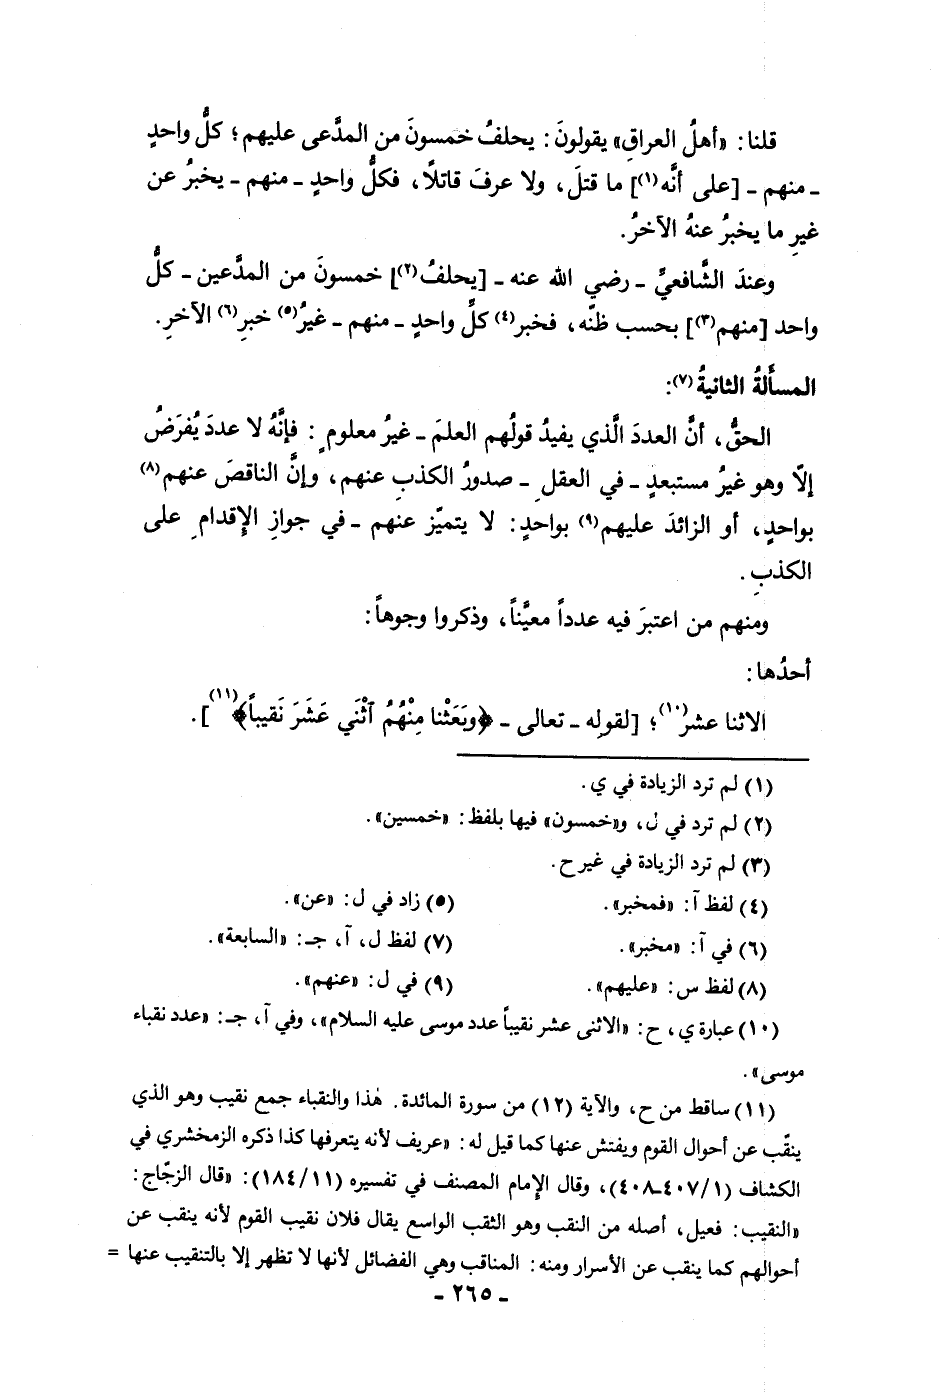 قلنا: «أهلُ العراقِ» يقولونَ: يحلفُ خمسونَ من المدَّعى عليهم؛ كلُّ واحدٍ
ـ منهم ـ [على أنَّه(١)] ما قتلَ، ولا عرفَ قاتلًا، فكلُّ واحدٍ ـ منهم ـ يخبرُ عن
غيرِ ما يخبرُ عنهُ الآخرُ.
وعندَ الشَّافعيِّ ـ رضي الله عنه ـ [يحلفُ(٢)] خمسونَ من المدَّعين ـ كلُّ
واحد [منهم(٣)] بحسب ظنّه، فخبر(٤) كلِّ واحدٍ ـ منهم ـ غيرُ(٥) خبرِ(٦) الآخرِ.
المسألةُ الثانيةُ(٧):
الحقُّ، أنَّ العددَ الَّذي يفيدُ قولُهم العلمَ ـ غيرُ معلومٍ: فإنَّهُ لا عددَ يُفرَضُ
إلّا وهو غيرُ مستبعدٍ ـ في العقلِ ـ صدورُ الكذبِ عنهم، وإنَّ الناقصَ عنهم(٨)
بواحدٍ، أو الزائدَ عليهم(٩) بواحدٍ: لا يتميّز عنهم ـ في جوازِ الإقدامِ على
الكذبِ.
ومنهم من اعتبرَ فيه عدداً معيَّناً، وذكروا وجوهاً:
أحدُها:
الاثنا عشر(١٠)؛ [لقولِه ـ تعالى ـ ﴿وبَعَثْنا مِنْهُمُ آثْنَي عَشَرَ نَقيباً﴾(١١)].
(١) لم ترد الزيادة في ي.
(٢) لم ترد في ل، و«خمسون» فيها بلفظ: «خمسين».
(٣) لم ترد الزيادة في غير ح.
(٤) لفظ آ: «فمخبر». (٥) زاد في ل: «عن».
(٦) في آ: «مخبر». (٧) لفظ ل، آ، جـ: «السابعة».
(٨) لفظ س: «عليهم». (٩) في ل: «عنهم».
(١٠) عبارة ي، ح: «الاثنى عشر نقيباً عدد موسى عليه السلام»، وفي آ، جـ: «عدد نقباء
موسى».
(١١) ساقط من ح، والآية (١٢) من سورة المائدة. هٰذا والنقباء جمع نقيب وهو الذي
ينقّب عن أحوال القوم ويفتش عنها كما قيل له: «عريف لأنه يتعرفها كذا ذكره الزمخشري في
الكشاف (١/٤٠٧ـ٤٠٨)، وقال الإمام المصنف في تفسيره (١١/١٨٤): «قال الزجّاج:
«النقيب: فعيل، أصله من النقب وهو الثقب الواسع يقال فلان نقيب القوم لأنه ينقب عن
أحوالهم كما ينقب عن الأسرار ومنه: المناقب وهي الفضائل لأنها لا تظهر إلا بالتنقيب عنها =
ـ ٢٦٥ ـ